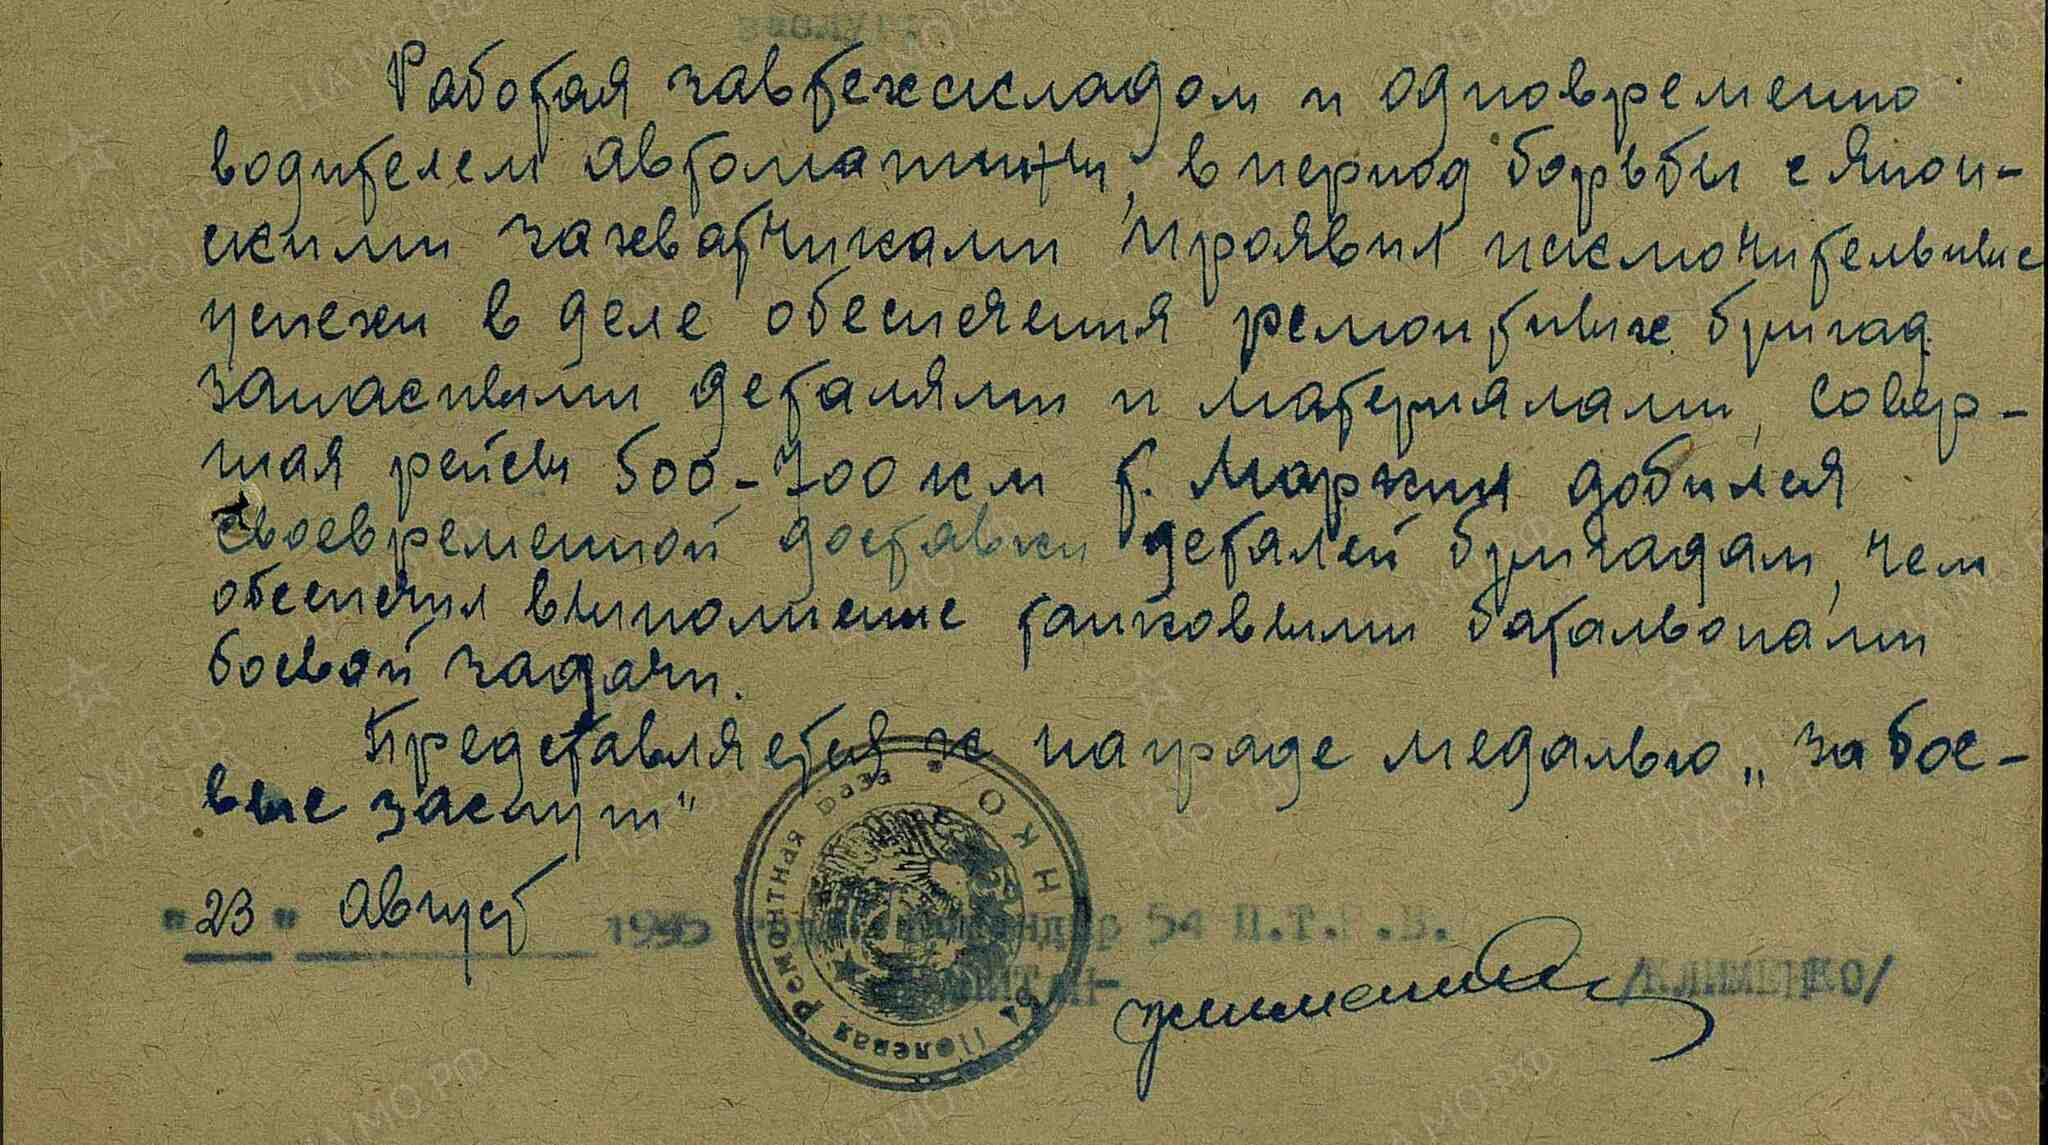 Работая завтехскладом и одновременно
водителем автомашины, в период борьбы с Япон-
скими захватчиками проявил исключительные
успехи в деле обеспечения ремонтных бригад
запасными деталями и материалами, совер-
шая рейсы 500-700 км т. Маркин добился
своевременной доставки деталей бригадам, чем
обеспечил выполнение танковыми батальонами
боевой задачи.
Представляется к награде медалью „за бое-
вые заслуги"
"23" Август 1945 года Командир 54 П.Т.Р.Б.
КАПИТАН /КЛИМЕНКО/
НКО
54 Полевая Ремонтная База
ЦА МО РФ
ПАМЯТЬ НАРОДА